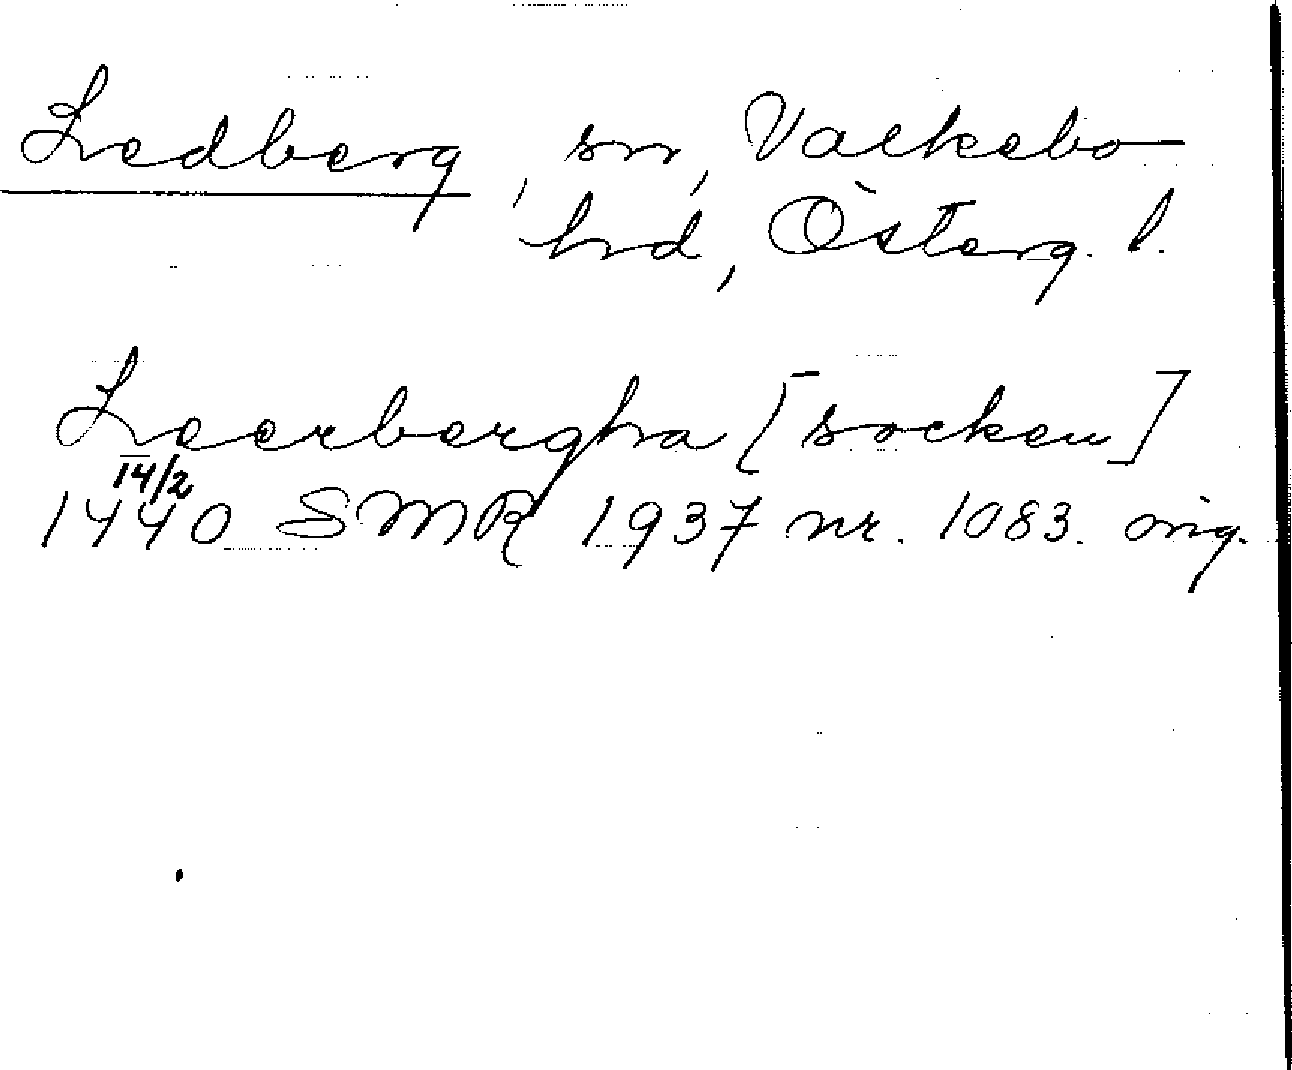 Ledberg, sn, Valkebo
hrd, Österg. l.
Leerbergha [socken]
14/2
1440 SMR 1937 nr. 1083. orig.